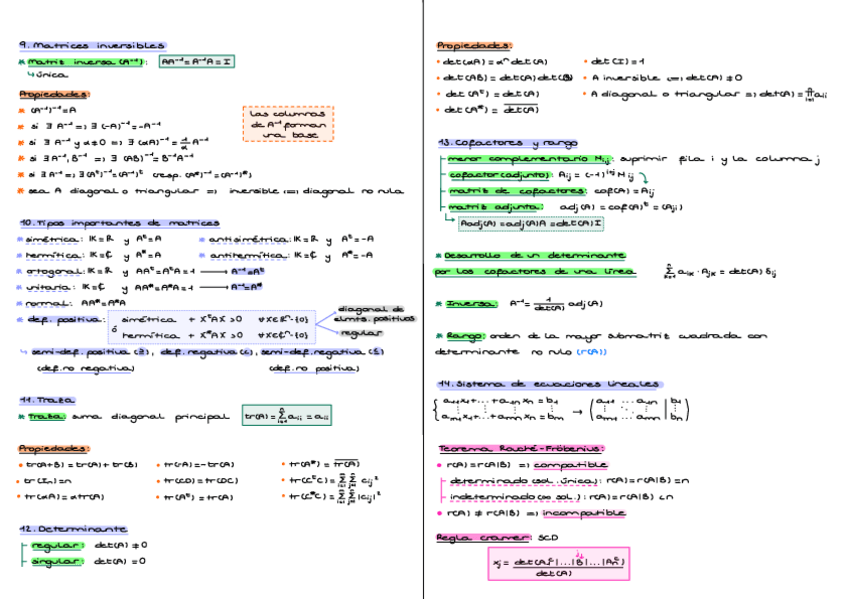 9. Matrices inversibles
* Matriz inversa (A⁻¹): AA⁻¹=A⁻¹A=I
↳ única
Propiedades:
* (A⁻¹)⁻¹=A
* si ∃ A⁻¹ ⇒ ∃ (-A)⁻¹=-A⁻¹
* si ∃ A⁻¹ y α≠0 ⇒ ∃ (αA)⁻¹= 1/α A⁻¹
* si ∃ A⁻¹, B⁻¹ ⇒ ∃ (AB)⁻¹=B⁻¹A⁻¹
* si ∃ A⁻¹ ⇒ ∃ (Aᵗ)⁻¹=(A⁻¹)ᵗ (resp. (A*)⁻¹=(A⁻¹)*)
* sea A diagonal o triangular ⇒ inversible ⟺ diagonal no nula
las columnas
de A⁻¹ forman
una base
10. Tipos importantes de matrices
* simétrica: IK=ℝ y Aᵗ=A
* antisimétrica: IK=ℝ y Aᵗ=-A
* hermítica: IK=ℂ y A*=A
* antihermítica: IK=ℂ y A*=-A
* ortogonal: IK=ℝ y AAᵗ=AᵗA=1 → A⁻¹=Aᵗ
* unitaria: IK=ℂ y AA*=A*A=1 → A⁻¹=A*
* normal: AA*=A*A
* def. positiva: simétrica + XᵗAX>0 ∀X∈ℝⁿ-{0}
ó
hermítica + X*AX>0 ∀X∈ℂⁿ-{0}
diagonal de
elmts. positivos
regular
↳ semi-def. positiva (≥), def. negativa (<), semi-def. negativa (≤)
(def. no negativa) (def. no positiva)
11. Traza
* Traza: suma diagonal principal tr(A)=∑ⁿᵢ₌₁ aᵢᵢ = aᵢᵢ
Propiedades:
• tr(A+B)=tr(A)+tr(B) • tr(-A)=-tr(A) • tr(A*)= \overline{tr(A)}
• tr(Iₙ)=n • tr(CD)=tr(DC) • tr(CᵗC)=∑∑cᵢⱼ²
• tr(αA)=αtr(A) • tr(Aᵗ)=tr(A) • tr(C*C)=∑∑|cᵢⱼ|²
12. Determinante
regular: det(A)≠0
singular: det(A)=0
Propiedades:
• det(αA)=αⁿdet(A) • det(I)=1
• det(AB)=det(A)det(B) • A inversible ⟺ det(A)≠0
• det(Aᵗ)=det(A) • A diagonal o triangular ⇒ det(A)=∏ⁿᵢ₌₁ aᵢᵢ
• det(A*)= \overline{det(A)}
13. Cofactores y rango
menor complementario Mᵢⱼ: suprimir fila i y la columna j
cofactor (adjunto): Aᵢⱼ=(-1)ⁱ⁺ʲMᵢⱼ
matriz de cofactores: cof(A)=Aᵢⱼ
matriz adjunta: adj(A)=cof(A)ᵗ=(Aⱼᵢ)
↳ Aadj(A)=adj(A)A=det(A)I
* Desarrollo de un determinante
por los cofactores de una línea ∑ⁿₖ₌₁ aᵢₖ·Aⱼₖ=det(A)δᵢⱼ
* Inversa: A⁻¹= 1/det(A) adj(A)
* Rango: orden de la mayor submatriz cuadrada con
determinante no nulo (r(A))
14. Sistema de ecuaciones lineales
{ a₁₁x₁+...+a₁ₙxₙ=b₁ → ( a₁₁ ... a₁ₙ | b₁ )
{ aₘ₁x₁+...+aₘₙxₙ=bₘ ( aₘ₁ ... aₘₙ | bₘ )
Teorema Rouché-Fröbenius:
• r(A)=r(A|B) ⇒ compatible
determinado (sol. única): r(A)=r(A|B)=n
indeterminado (∞ sol.): r(A)=r(A|B)<n
• r(A)≠r(A|B) ⇒ incompatible
Regla cramer: SCD
xⱼ= det(A₁ᶜ|...|B|...|Aₙᶜ) / det(A)